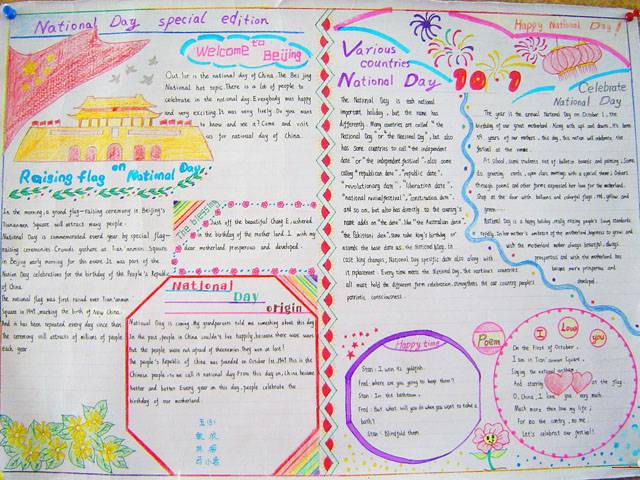 National Day special edition
Welcome to Beijing
Out for is the national day of China. The Bei jing
National hot topic. There is a lot of people to
celebrate in the national day. Everybody was happy
and very exciting. It was very lively. Do you want
to know and see it? Come and visit
us for national day of China.
Raising flag on National Day
In the morning, a grand flag-raising ceremony is Beijing's
Tiananmen Square will attract many people.
National Day is commemorated every year by special flag-
raising ceremonies. Crowds gathere as Tian'anmen Square
in Beijing early morning for this event. It was part of the
Nation Day celebrations for the birthday of the People's Republic
of China.
The national flag was first raised over Tian'anmen
Square in 1949, marking the birth of New China.
And it has been repeated every day since then.
The ceremony still attracts of millions of people
each year
The blessing
Just off the beautiful Chang E, ushered
in the birthday of the mother land. I wish my
dear motherland prosperous and developed.
National
Day
origin
National Day is coming. My grandparents told me something about this day
In the past, people in China couldn't live happily, because there were wars
But the people were not afraid of the enemies they won at last!
The people's Republic of China was founded on October 1st, 1949. this is the
Chinese people, so we call it national day. From this day on, China became
better and better. Every year on this day, people celebrate the
birthday of our motherland.
Various
countries
National Day
10.1
The National Day is each national
important holiday, but the name has
differently. Many countries are called "the
National Day" or "the National Day", but also
has Some countries to call "the independent
date" or "the independent festival" also some
calling "republican date", "republic date",
"revolutionary date", "liberation date",
"national revival festival", "construction date",
and so on, but also has directly to the country's
name adds on "the date", like "the Australian date",
"the Pakistan date", some take king's birthday or
ascends the base date as the National Day, in
case king changes, National Day specific date also along with
it replacement. Every time meets the National Day, the various countries
all must hold the different form celebration, strengthens the our country people's
patriotic consciousness.
Happy National Day!
Celebrate
National Day
The year is the annual National Day on October 1, the
birthday of our great motherland. Along with ups and downs, it's been
years of our mothers, this day, this nation will celebrate, the
festival at the venue.
At school, some students out of bulletin boards and painting, Some
greeting cards, open class meeting with a special theme, Others
through poems and other forms expressed her love for the motherland.
Shop at the door with balloons and colorful flags, red, yellow and
green
National Day is a happy holiday really, raising people's living standards
rapidly. In her mother's embrace of the motherland happiness to grow and
wish the motherland mother always beautiful, always
prosperous and wish the motherland has
become more prosperous and
developed.
Happy time
Stan: I won its goldfish.
Fred: Where are you going to keep them?
Stan: In the bathroom.
Fred: But what will you do when you want to take a
bath?
Stan: Blindfold them
Poem
I Love you
On the first of October,
I am in Tian'anmen Square,
Singing the national anthem
And staring at the flag.
O, China, I love you very much.
Much more than love my life;
For no the country, no me.
Let's celebrate our festival!